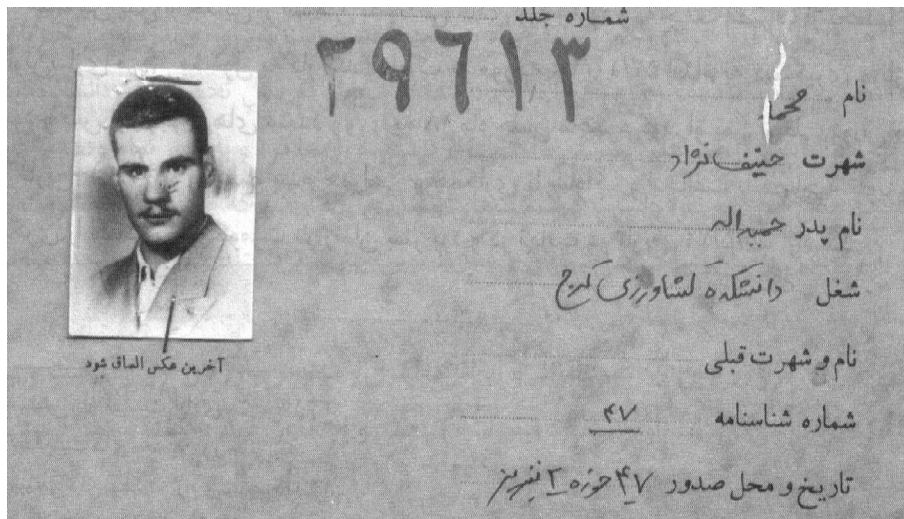 شماره جلد
۲۹۶۱۳
نام محمد
شهرت حنیف نژاد
نام پدر حمیداله
شغل دانشکده کشاورزی کرج
نام و شهرت قبلی
شماره شناسنامه ۴۷
تاریخ و محل صدور ۴۷ حوزه ۲ تبریز
آخرین عکس الصاق شود